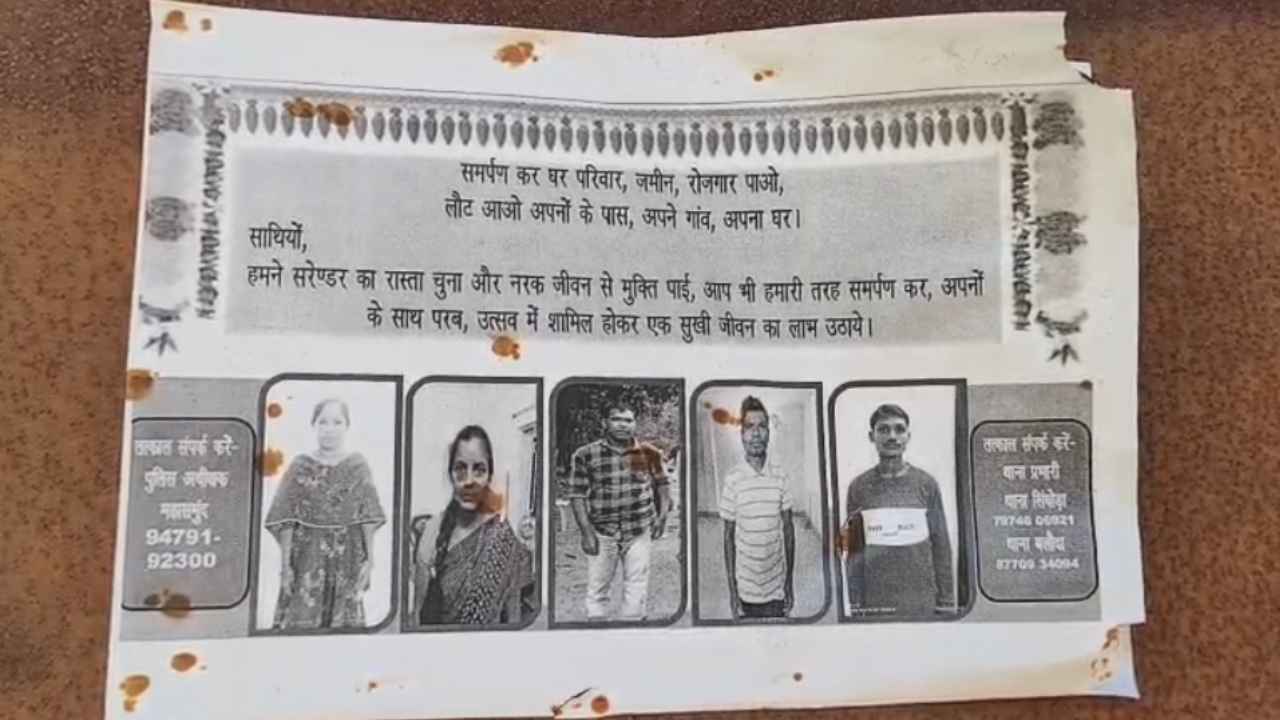 समर्पण कर घर परिवार, ज़मीन, रोजगार पाओ,
लौट आओ अपनों के पास, अपने गांव, अपना घर।
साथियों,
हमने सरेण्डर का रास्ता चुना और नरक जीवन से मुक्ति पाई, आप भी हमारी तरह समर्पण कर, अपनों
के साथ परब, उत्सव में शामिल होकर एक सुखी जीवन का लाभ उठाये।
तत्काल संपर्क करें-
पुलिस अधीक्षक
महासमुंद
94791-
92300
तत्काल संपर्क करें-
थाना प्रभारी
थाना सिंघोड़ा
थाना बलौदा